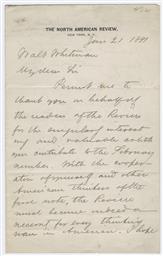 THE NORTH AMERICAN REVIEW.
NEW YORK, N.Y.
Jan 21 1891
Walt Whitman
My dear Sir
Permit me to
thank you in behalf of
the readers of the Review
for the
and valuable
you contribute to the February
number. With the cooper-
ation of yourself and other
American thinkers of the
first note, the Review
must become indeed a
necessity for every thinking
man in America. I hope